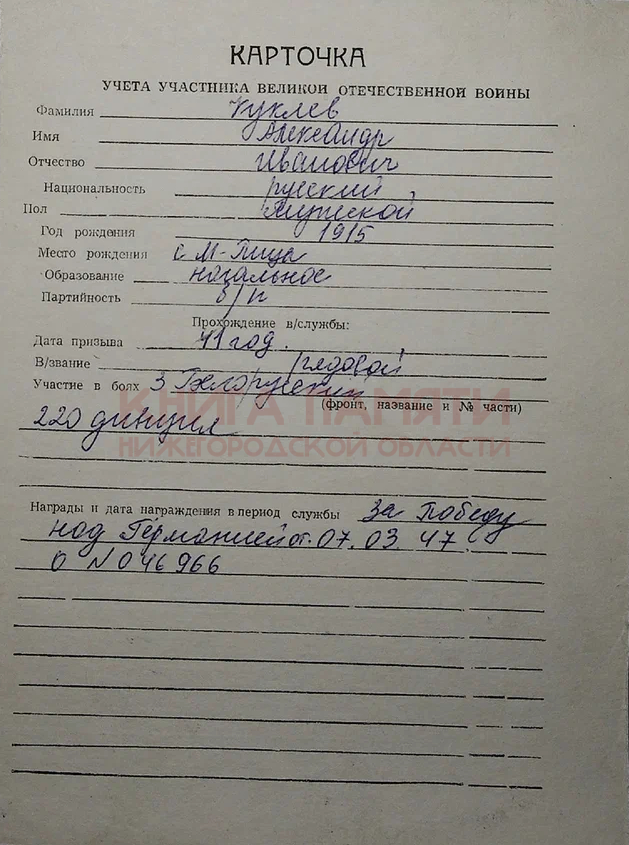 КАРТОЧКА
УЧЕТА УЧАСТНИКА ВЕЛИКОЙ ОТЕЧЕСТВЕННОЙ ВОЙНЫ
Фамилия Куклев
Имя Александр
Отчество Иванович
Национальность русский
Пол Мужской
Год рождения 1915
Место рождения с М-Пица
Образование начальное
Партийность б/п
Прохождение в/службы:
Дата призыва 41 год.
В/звание рядовой
Участие в боях 3 Белорусский
(фронт, название и № части)
220 дивизия
КНИГА ПАМЯТИ
НИЖЕГОРОДСКОЙ ОБЛАСТИ
Награды и дата награждения в период службы За Победу
над Германией от. 07. 03. 47
О N 046966